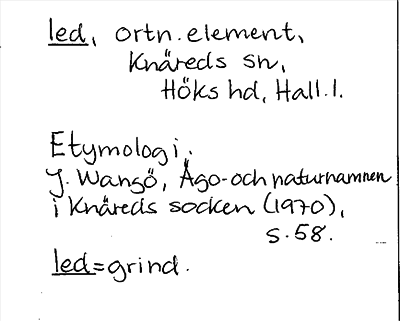 led, ortn.element,
Knäreds sn,
Höks hd, Hall.l.
Etymologi.
J. Wangö, Ägo- och naturnamnen
i Knäreds socken (1970),
s.58.
led=grind.